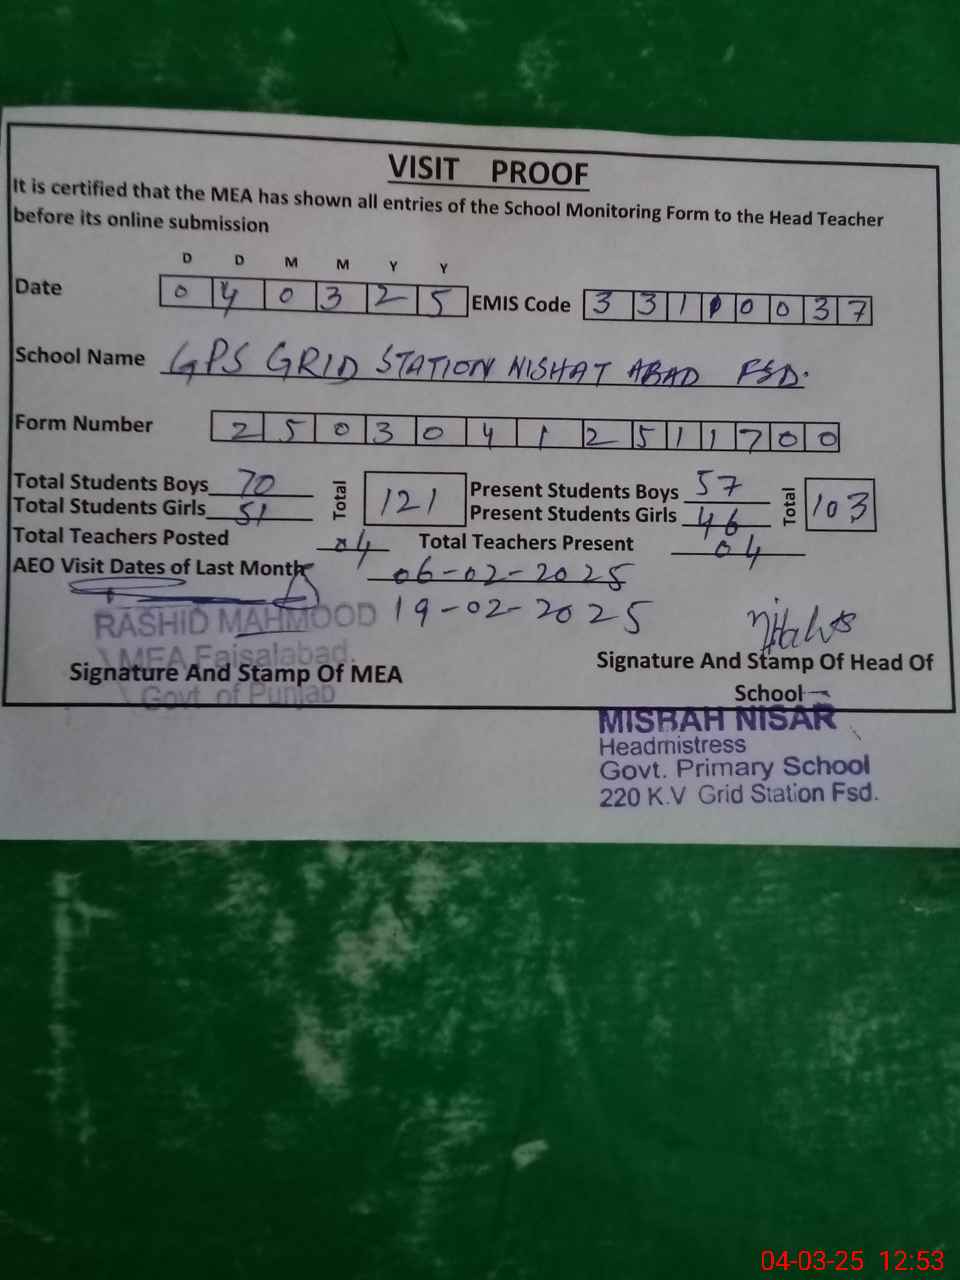 VISIT PROOF
It is certified that the MEA has shown all entries of the School Monitoring Form to the Head Teacher
before its online submission
D D M M Y Y
Date 0 4 0 3 2 5 EMIS Code 3 3 1 1 0 0 3 7
School Name GPS GRID STATION NISHAT ABAD FSD.
Form Number 2 5 0 3 0 4 1 2 5 1 1 7 0 0
Total Students Boys 70 Total 121 Present Students Boys 57 Total 103
Total Students Girls 51 Present Students Girls 46
Total Teachers Posted 04 Total Teachers Present 04
AEO Visit Dates of Last Month 06-02-2025
19-02-2025
RASHID MAHMOOD
MEA Faisalabad.
Govt. of Punjab
Signature And Stamp Of MEA
Signature And Stamp Of Head Of
School
MISBAH NISAR
Headmistress
Govt. Primary School
220 K.V Grid Station Fsd.
04-03-25 12:53